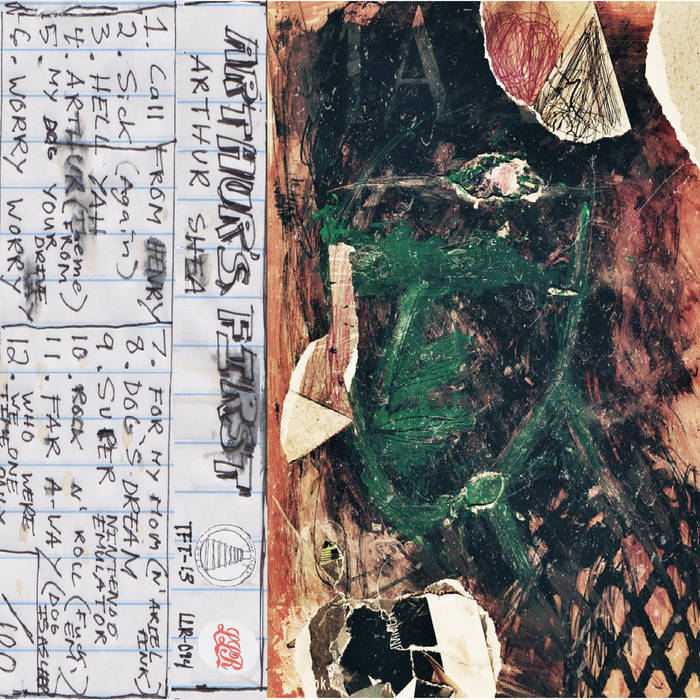 ARTHUR'S FIRST
ARTHUR SHEA
TFT-15
LLR-094
1. Call FROM HENRY
2. Sick (Again)
3. HELL YAH
4. ARTHUR (Theme)
5. MY DOG YOUR
6. WORRY WORRY
7. FOR MY MOM (N' ARIEL PINK)
8. DOG'S DREAM
9. SUPER NINTENDO
EMULATOR
10. ROCK N' ROLL
11. FAR A-WAY (DOG
IS ASLEEP)
12. WHO WERE
WE ONE
/100